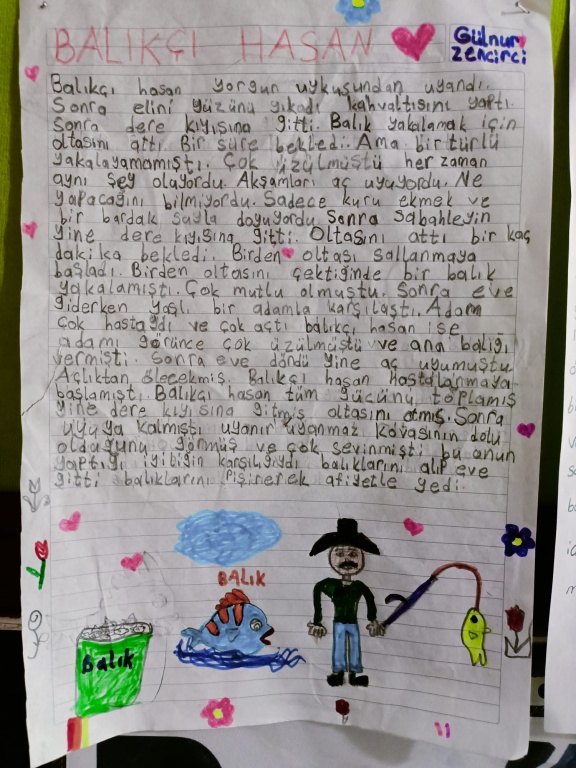 BALIKÇI HASAN
Gülnur
Zencirci
Balıkçı hasan yorgun uykusundan uyandı.
Sonra elini yüzünü yıkadı kahvaltısını yaptı.
Sonra dere kıyısına gitti. Balık yakalamak için
oltasını attı. Bir süre bekledi. Ama bir türlü
yakalayamamıştı. Çok üzülmüştü her zaman
aynı şey oluyordu. Akşamları aç uyuyordu. Ne
yapacağını bilmiyordu. Sadece kuru ekmek ve
bir bardak suyla doyuyordu. Sonra sabahleyin
yine dere kıyısına gitti. Oltasını attı bir kaç
dakika bekledi. Birden oltası sallanmaya
başladı. Birden oltasını çektiğinde bir balık
yakalamıştı. Çok mutlu olmuştu. Sonra eve
giderken yaşlı bir adamla karşılaştı. Adam
çok hastaydı ve çok açtı balıkçı hasan ise
adamı görünce çok üzülmüştü ve ona balığı
vermişti. Sonra eve döndü yine aç uyumuştu
Açlıktan ölecekmiş. Balıkçı hasan hastalanmaya
başlamıştı. Balıkçı hasan tüm gücünü toplamış
yine dere kıyısına gitmiş oltasını atmış. Sonra
uyuya kalmıştı uyanır uyanmaz kovasının dolu
olduğunu görmüş ve çok sevinmişti bu onun
yaptığı iyiliğin karşılığıydı balıklarını alıp eve
gitti balıklarını pişirerek afiyetle yedi.
BALIK
Balık